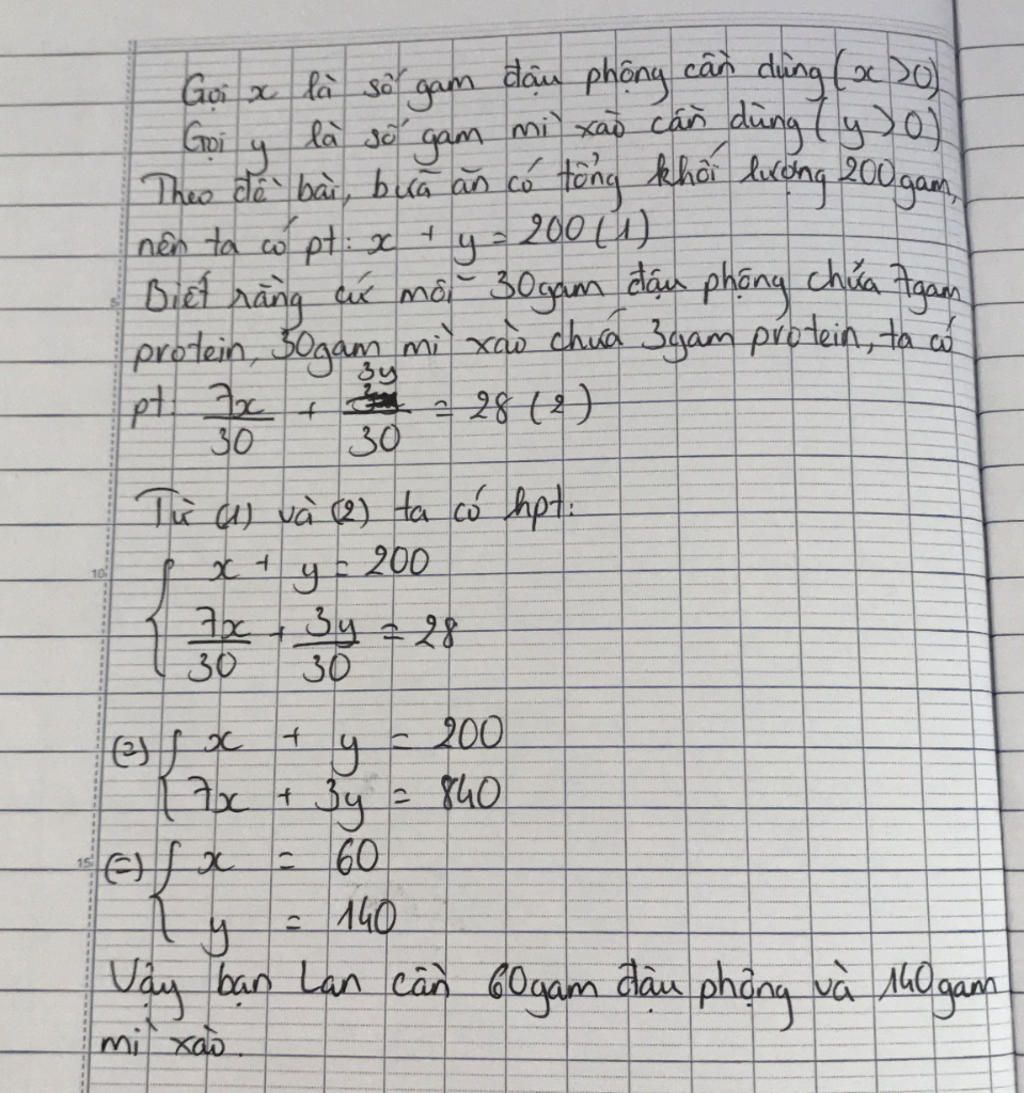 Gọi x là số gam đậu phộng cần dùng (x > 0)
Gọi y là số gam mì xào cần dùng (y > 0)
Theo đề bài, bữa ăn có tổng khối lượng 200gam,
nên ta có pt: x + y = 200 (1)
Biết rằng cứ mỗi 30gam đậu phộng chứa 7gam
protein, 30gam mì xào chứa 3gam protein, ta có
pt: 7x/30 + 3y/30 = 28 (2)
Từ (1) và (2) ta có hpt:
x + y = 200
7x/30 + 3y/30 = 28
(=) { x + y = 200
7x + 3y = 840
(=) { x = 60
y = 140
Vậy bạn Lan cần 60gam đậu phộng và 140gam
mì xào.
5
10
15